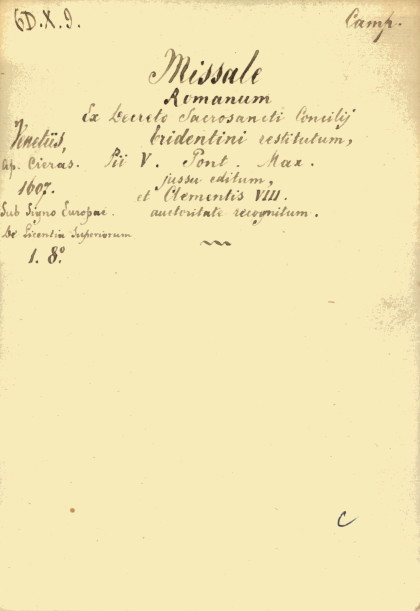 6D.X.9.
Camp.
Missale
Romanum
Ex Decreto Sacrosancti Concilij
Tridentini restitutum,
Pii V. Pont. Max.
jussu editum,
et Clementis VIII.
auctoritate recognitum.
Venetiis,
ap. Cieras.
1607.
Sub Signo Europae.
De Licentia Superiorum
1. 8º
C